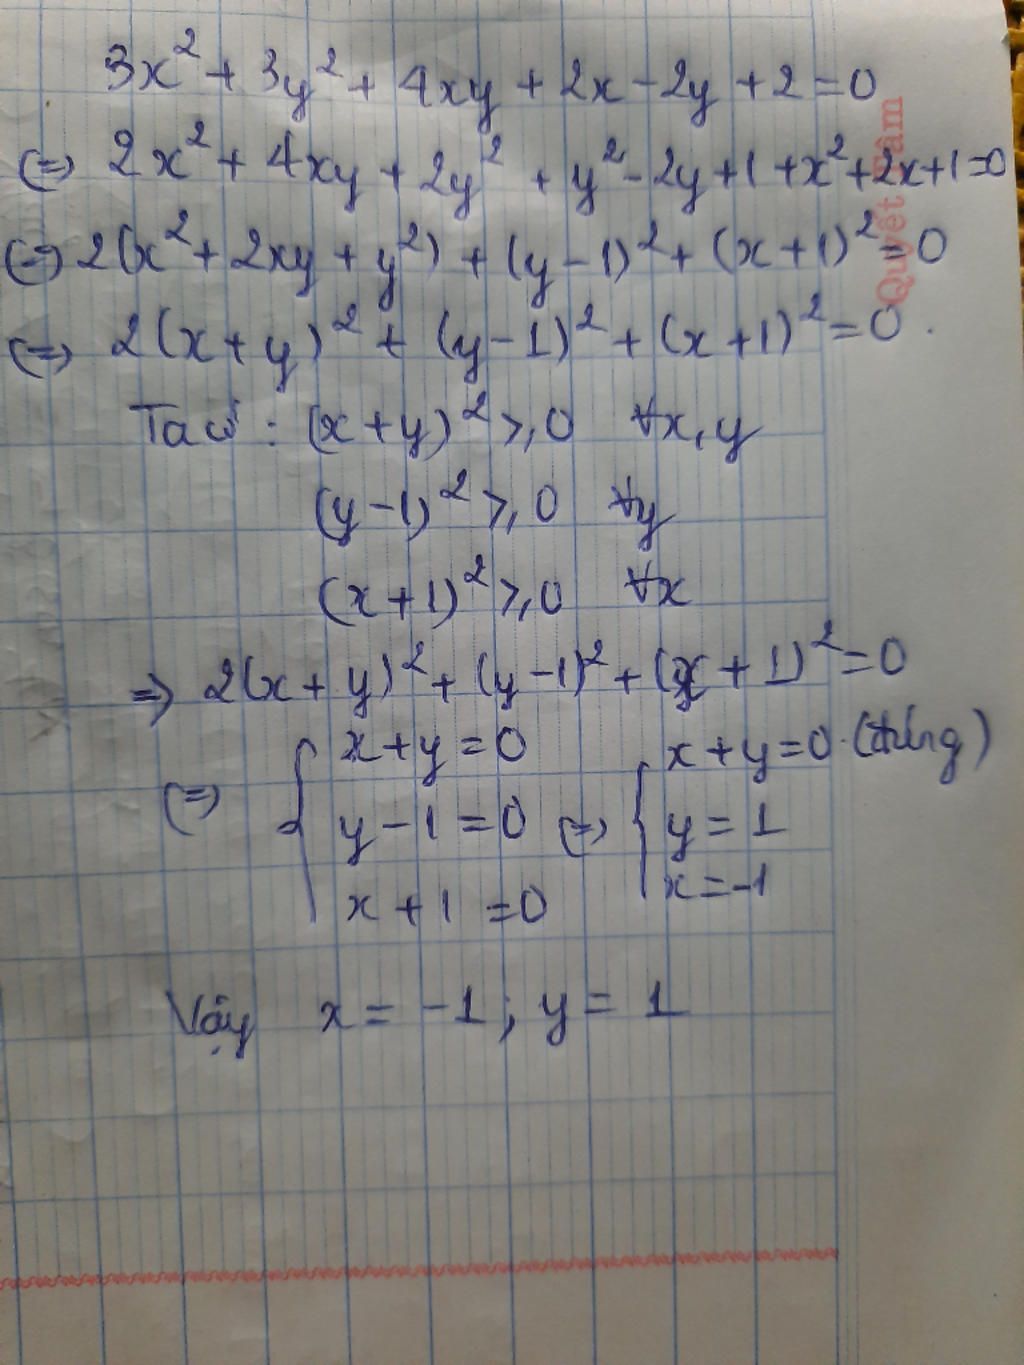 3x² + 3y² + 4xy + 2x - 2y + 2 = 0
(=) 2x² + 4xy + 2y² + y² - 2y + 1 + x² + 2x + 1 = 0
(=) 2(x² + 2xy + y²) + (y - 1)² + (x + 1)² = 0
(=) 2(x + y)² + (y - 1)² + (x + 1)² = 0.
Ta có : (x + y)² ⩾ 0 ∀x, y
(y - 1)² ⩾ 0 ∀y
(x + 1)² ⩾ 0 ∀x
=> 2(x + y)² + (y - 1)² + (x + 1)² = 0
(=) { x + y = 0 (=) { x + y = 0 (đúng)
y - 1 = 0 y = 1
x + 1 = 0 x = -1
Vậy x = -1 ; y = 1
Quyết Tâm